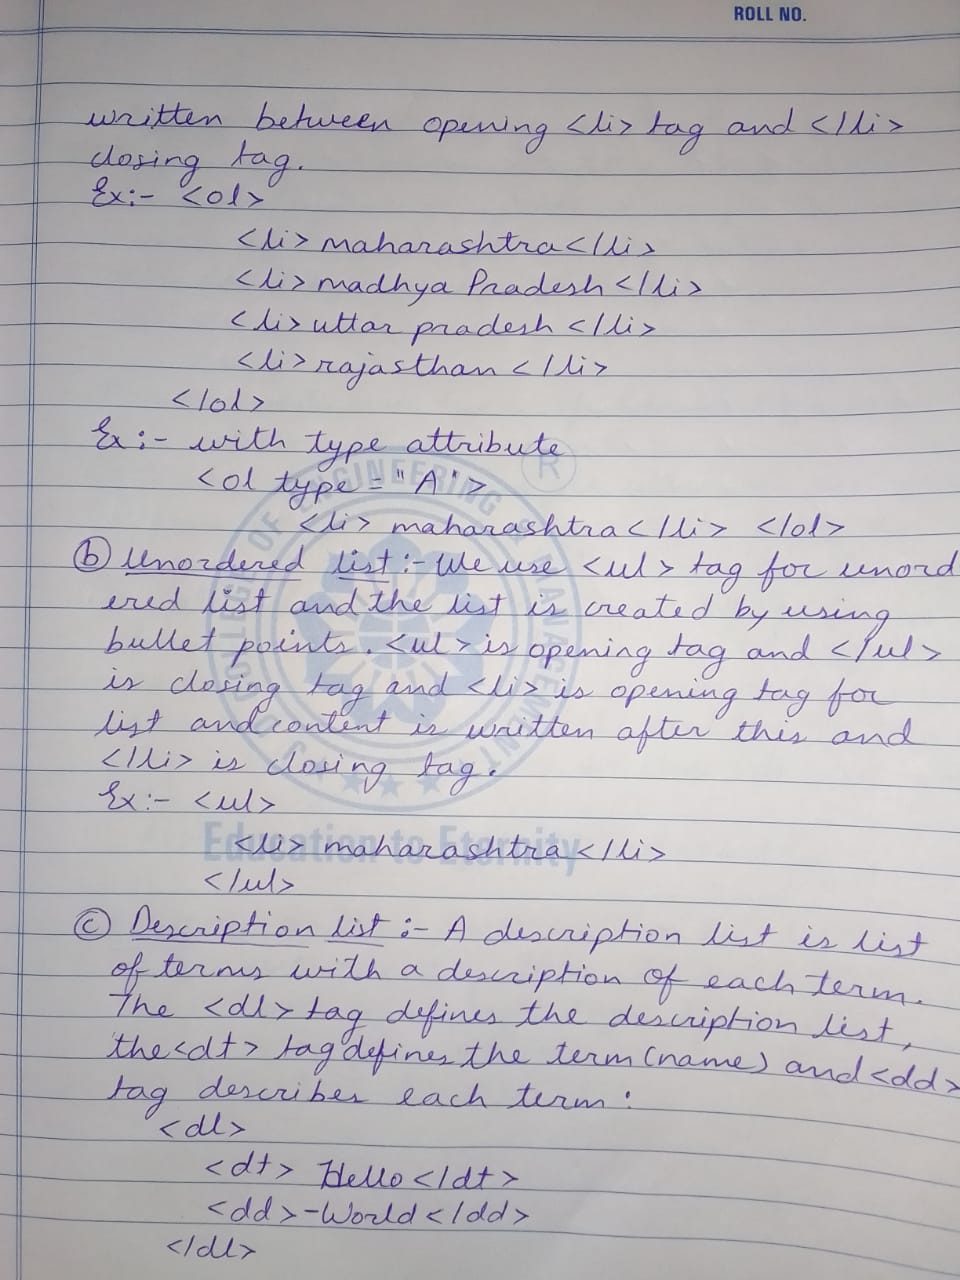 ROLL NO.
written between opening <li> tag and </li>
closing tag.
Ex:- <ol>
<li> maharashtra </li>
<li> madhya Pradesh </li>
<li> uttar pradesh </li>
<li> rajasthan </li>
</ol>
Ex:- with type attribute
<ol type = "A">
<li> maharashtra </li> </ol>
(b) Unordered list :- We use <ul> tag for unord
ered list and the list is created by using
bullet points. <ul> is opening tag and </ul>
is closing tag and <li> is opening tag for
list and content is written after this and
</li> is closing tag.
Ex:- <ul>
<li> maharashtra </li>
</ul>
(c) Description list :- A description list is list
of terms with a description of each term.
The <dl> tag defines the description list,
the <dt> tag defines the term (name) and <dd>
tag describes each term :
<dl>
<dt> Hello </dt>
<dd> -World </dd>
</dl>
COLLEGE OF ENGINEERING
MANAGEMENT
®
Education to Eternity